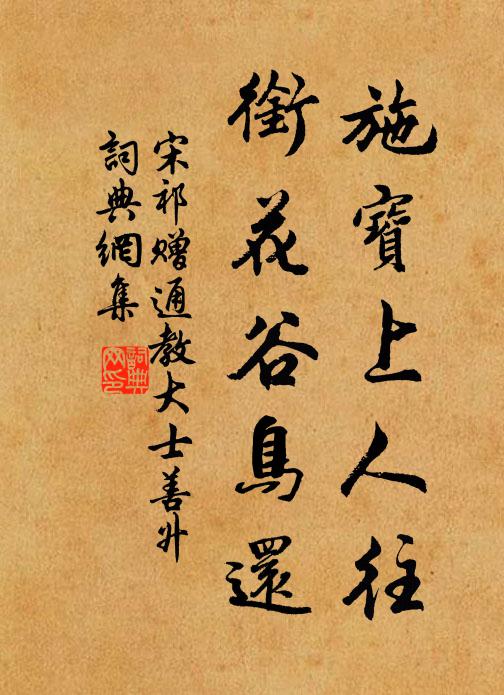 施寶上人往
銜花谷鳥還
宋祁贈通教大士善升
詞典網集
詞典網印